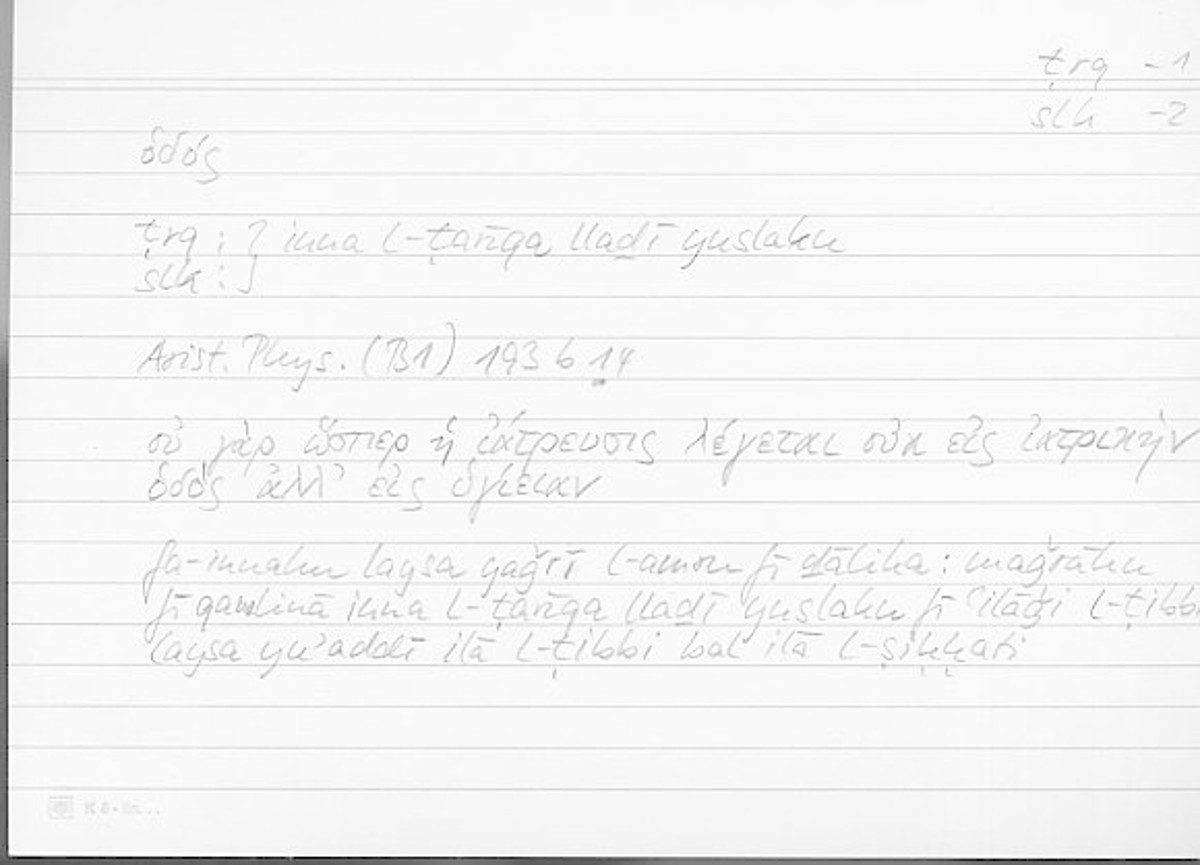 ṭrq – 1
slk – 2
ὁδός
ṭrq : } inna l-ṭarīqa lladī yuslaku
slk : }
Arist. Phys. (B1) 193 b 14
οὐ γὰρ ὥσπερ ἡ ἰάτρευσις λέγεται οὐκ εἰς ἰατρικὴν
ὁδὸς ἀλλ’ εἰς ὑγίειαν
fa-innahu laysa yaǧrī l-amru fī ḏālika : maǧrāhu
fī qawlinā inna l-ṭarīqa lladī yuslaku fī ʿilāǧi l-ṭibbi
laysa yuʾaddī ilā l-ṭibbi bal ilā l-ṣiḥḥati